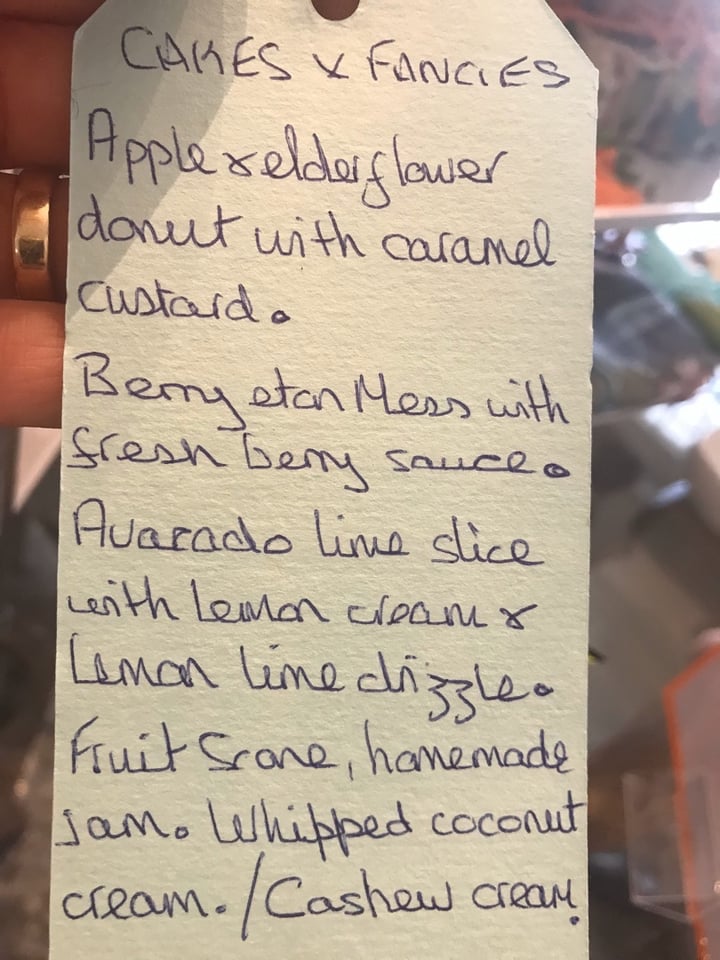 CAKES & FANCIES
Apple & elderflower
donut with caramel
custard.
Berry eton Mess with
fresh berry sauce.
Avacado lime slice
with lemon cream &
Lemon lime drizzle.
Fruit Scone, homemade
jam. Whipped coconut
cream. / Cashew cream.